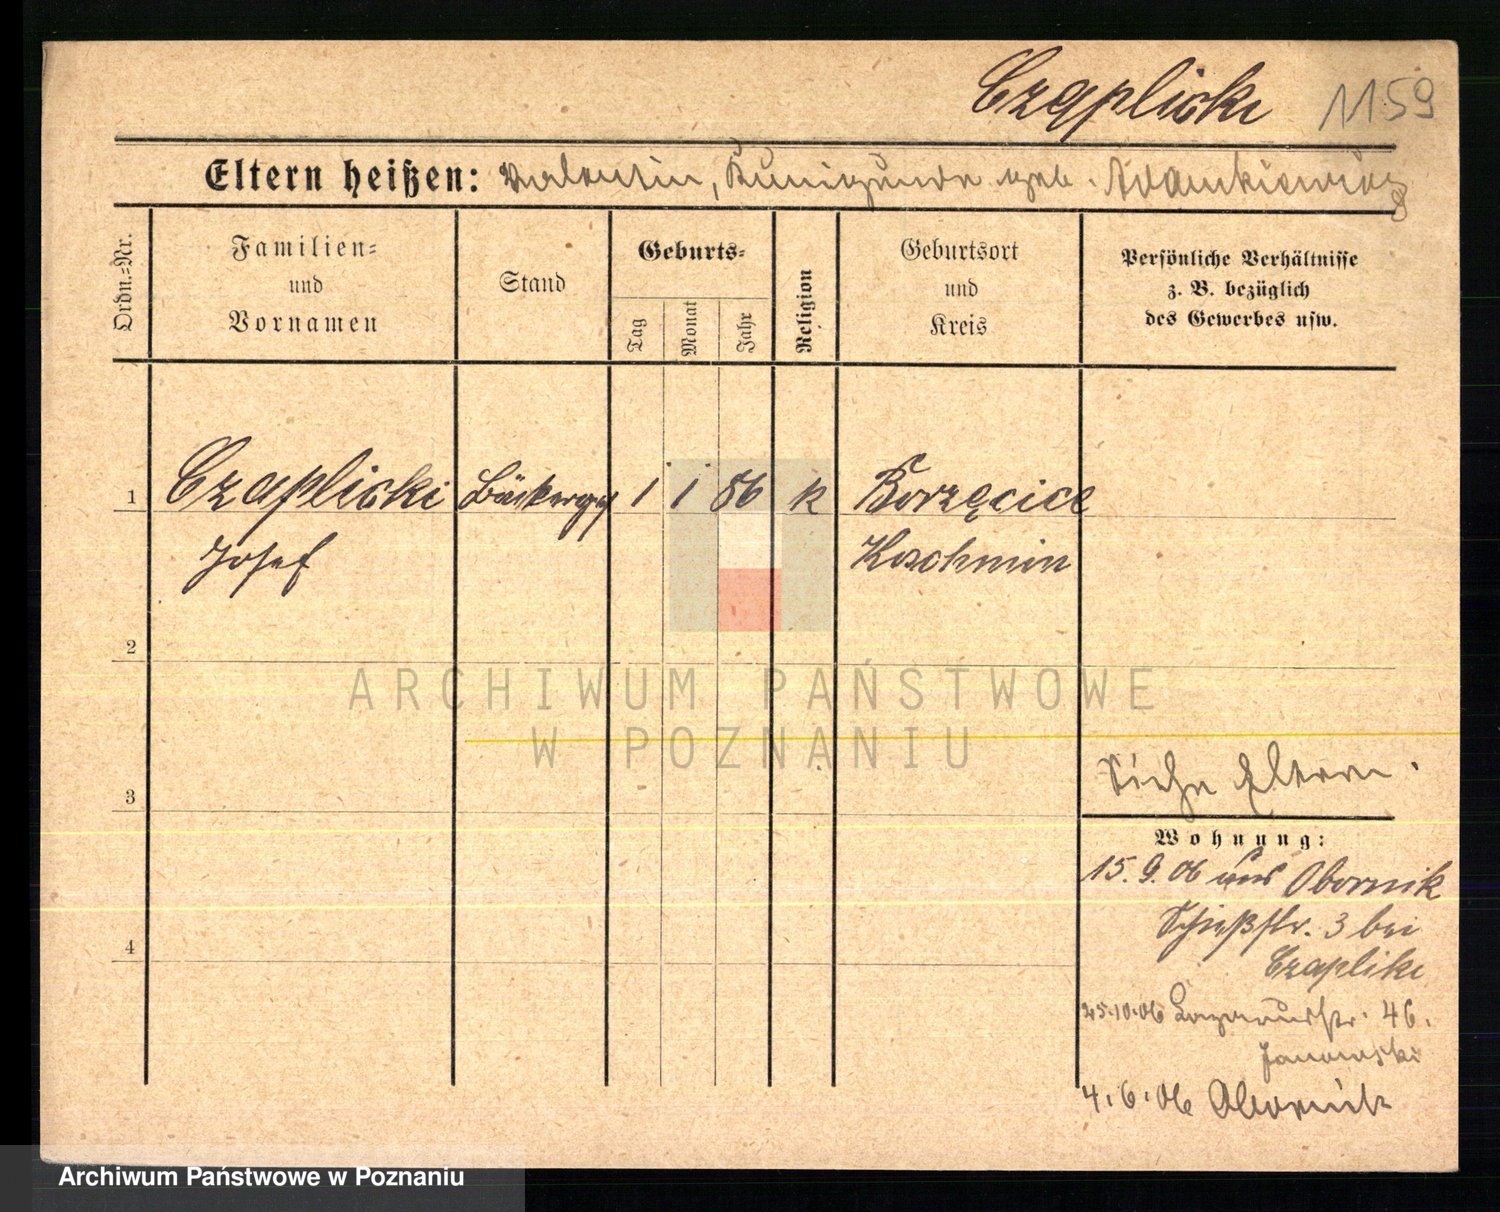 Czaplicki 1159
Eltern heißen: Valentin, Kunigunde geb. Adamkiewicz
Ordn.=Nr.
Familien=
und
Vornamen
Stand
Geburts=
Tag
Monat
Jahr
Religion
Geburtsort
und
Kreis
Persönliche Verhältnisse
z. B. bezüglich
des Gewerbes usw.
1 Czaplicki Bäckerges 1 1 86 k Borzęcice
Josef Koschmin
2
ARCHIWUM PAŃSTWOWE
W POZNANIU
Siehe Eltern.
3
Wohnung:
15.9.06 aus Obornik
Schießstr. 3 bei
Czapliki
4
25.10.06 Lazarusstr. 46.
Janowski
4.6.06 Obornik
Archiwum Państwowe w Poznaniu